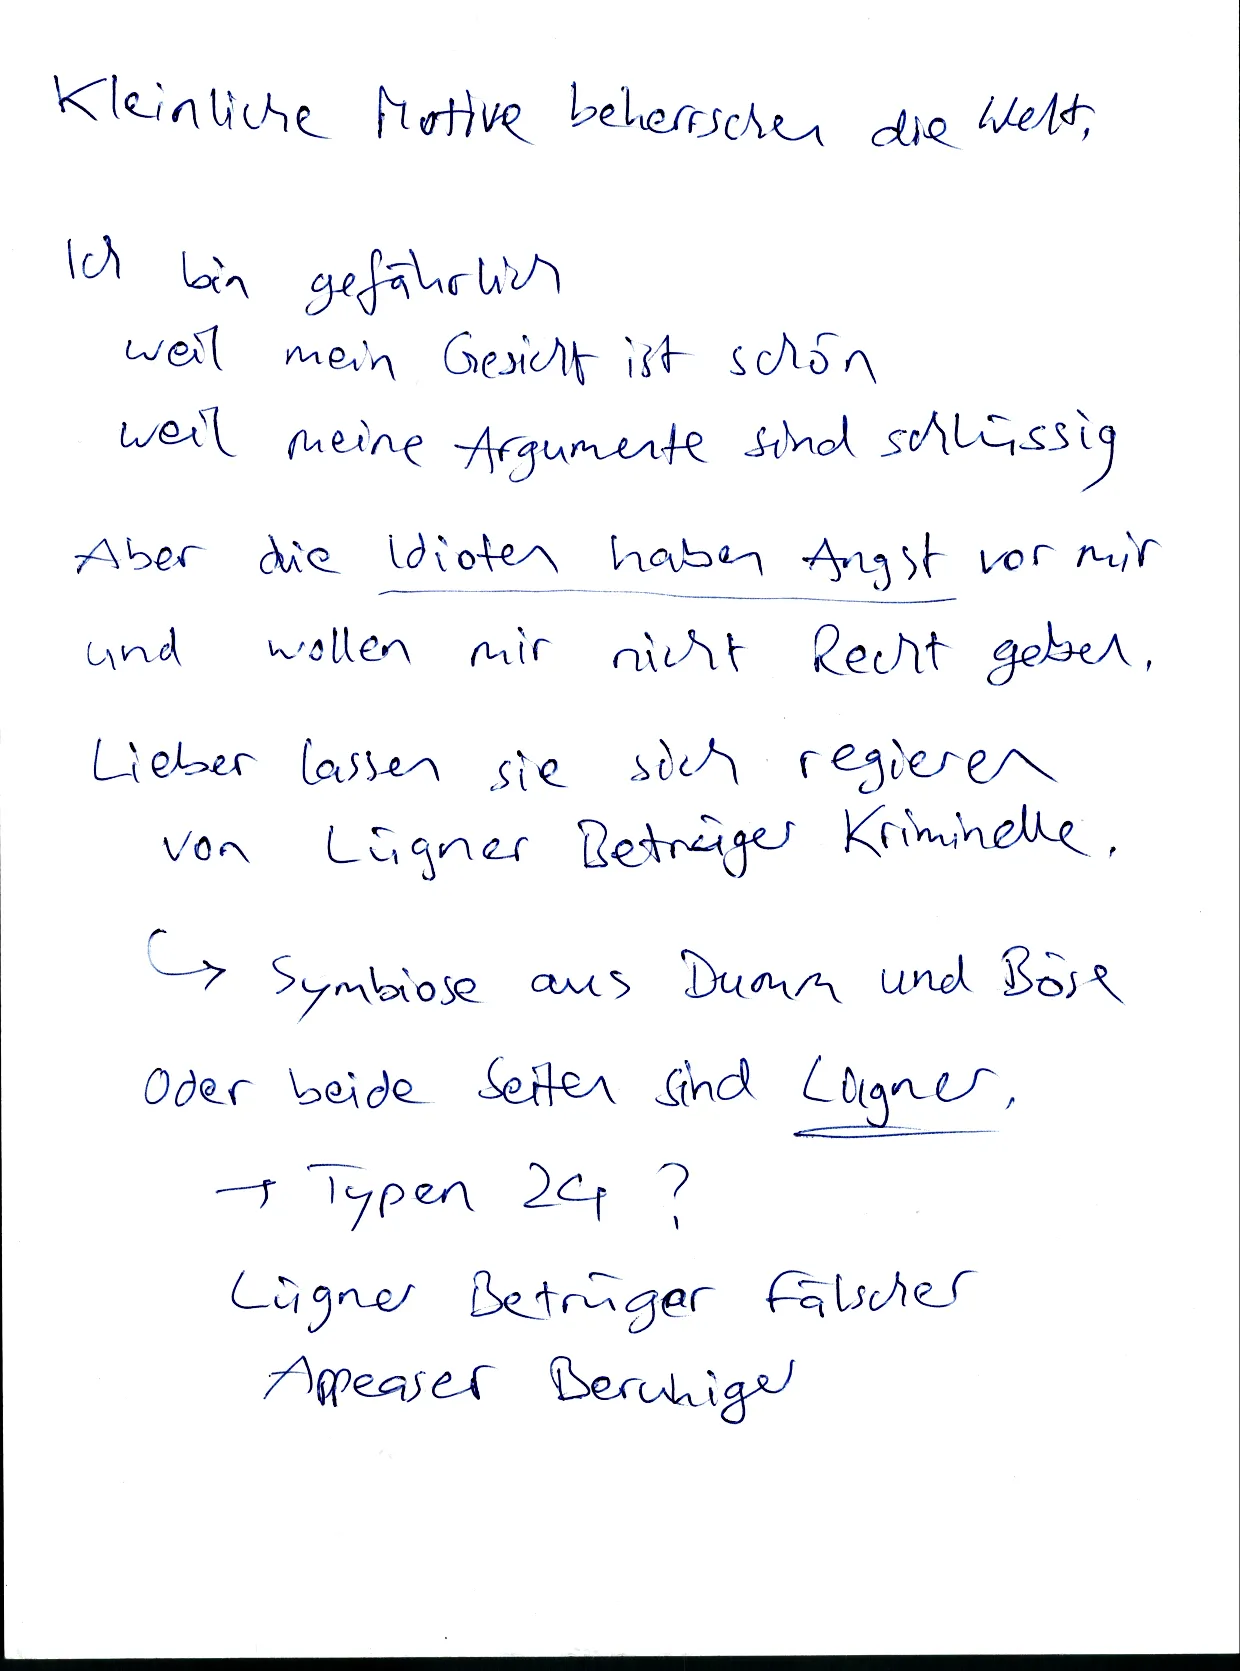 Kleinliche Motive beherrschen die Welt.
Ich bin gefährlich
weil mein Gesicht ist schön
weil meine Argumente sind schlüssig
Aber die Idioten haben Angst vor mir
und wollen mir nicht Recht geben.
Lieber lassen sie sich regieren
von Lügner Betrüger Kriminelle.
↳ Symbiose aus Dumm und Böse
Oder beide Seiten sind Lügner.
→ Typen 24 ?
Lügner Betrüger Fälscher
Appeaser Beruhiger